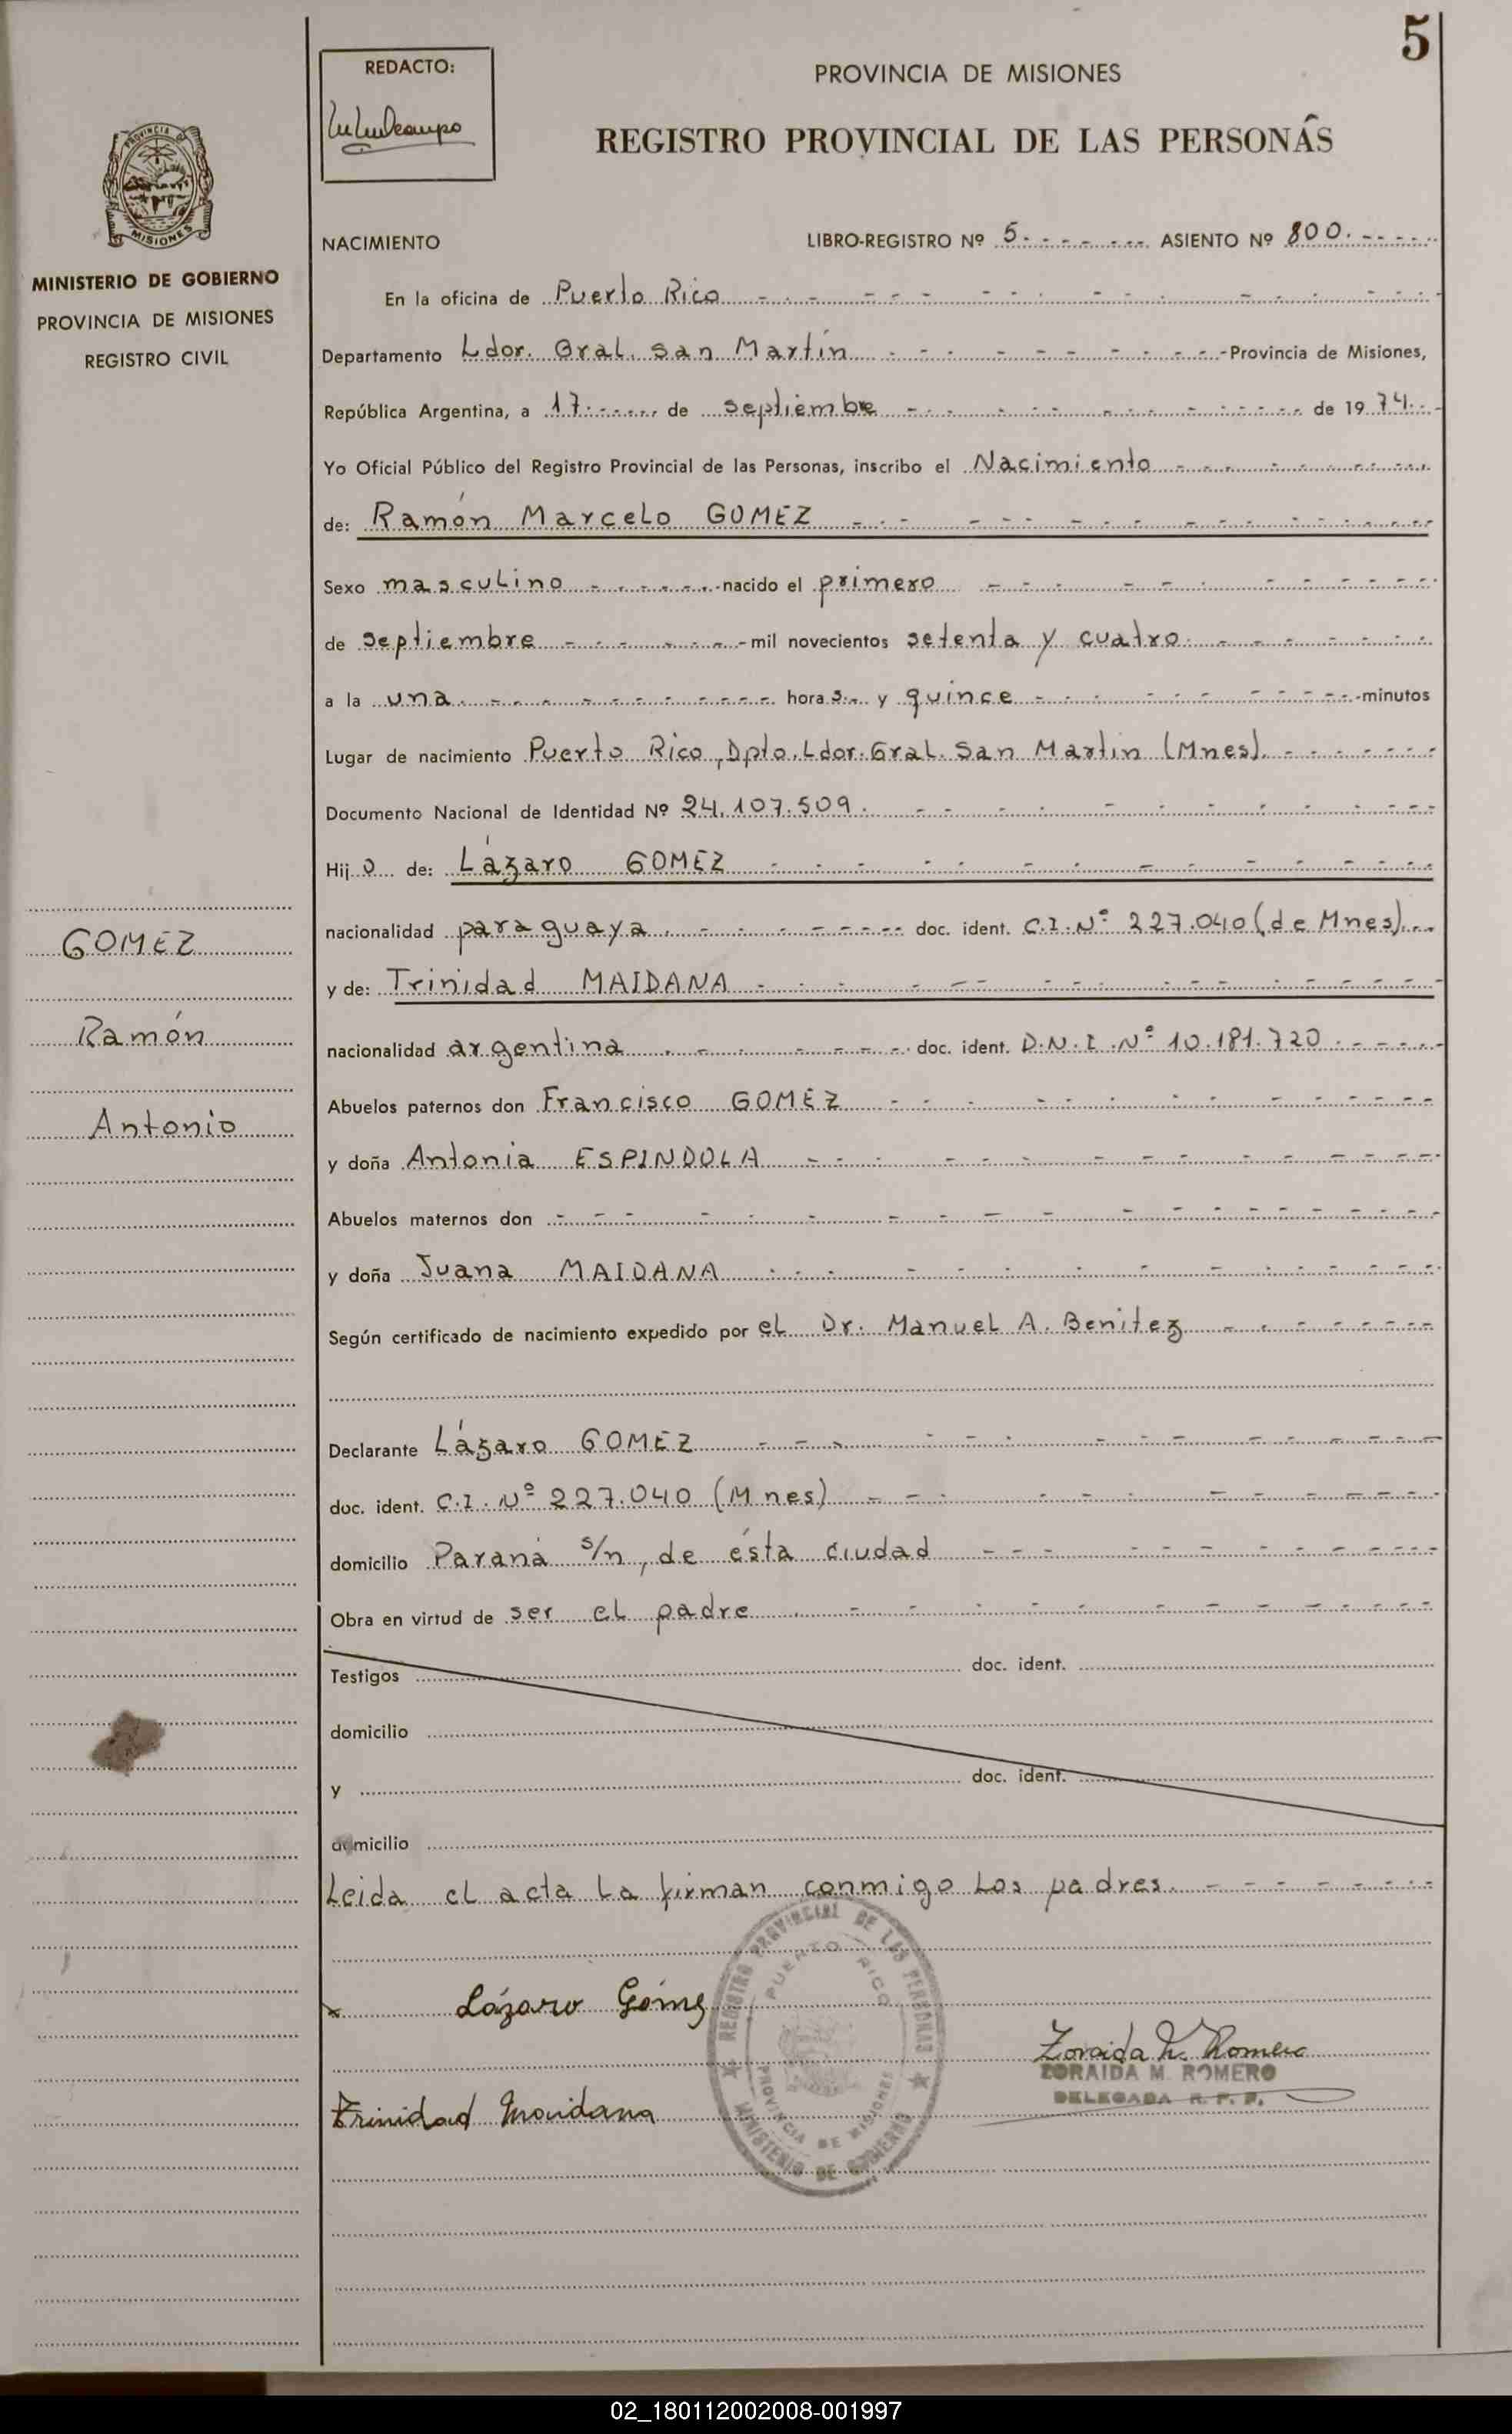 5
REDACTO:
PROVINCIA DE MISIONES
REGISTRO PROVINCIAL DE LAS PERSONAS
PROVINCIA DE
MISIONES
MINISTERIO DE GOBIERNO
PROVINCIA DE MISIONES
REGISTRO CIVIL
NACIMIENTO LIBRO-REGISTRO Nº 5 ASIENTO Nº 800.
En la oficina de Puerto Rico
Departamento Ldor. Gral. San Martín Provincia de Misiones,
República Argentina, a 17 de septiembre de 1974.
Yo Oficial Público del Registro Provincial de las Personas, inscribo el Nacimiento
de: Ramón Marcelo GOMEZ
Sexo masculino nacido el primero
de septiembre mil novecientos setenta y cuatro
a la una hora s y quince minutos
Lugar de nacimiento Puerto Rico, Dpto. Ldor. Gral. San Martín (Mnes).
Documento Nacional de Identidad Nº 24.107.509.
Hijo de: Lázaro GOMEZ
nacionalidad paraguaya doc. ident. C.I. Nº 227.040 (de Mnes)
y de: Trinidad MAIDANA
nacionalidad argentina doc. ident. D.N.I. Nº 10.181.720
Abuelos paternos don Francisco GOMEZ
y doña Antonia ESPINDOLA
Abuelos maternos don
y doña Juana MAIDANA
Según certificado de nacimiento expedido por el Dr. Manuel A. Benitez
Declarante Lázaro GOMEZ
doc. ident. C.I. Nº 227.040 (Mnes)
domicilio Paraná s/n, de ésta ciudad
Obra en virtud de ser el padre
Testigos doc. ident.
domicilio
y doc. ident.
domicilio
Leida el acta la firman conmigo los padres.
GOMEZ
Ramón
Antonio
Lázaro Gómez
Trinidad Maidana
REGISTRO PROVINCIAL DE LAS PERSONAS
PUERTO RICO
PROVINCIA DE MISIONES
MINISTERIO DE GOBIERNO
Zoraida M. Romero
ZORAIDA M. ROMERO
DELEGADA R. P. P.
02_180112002008-001997